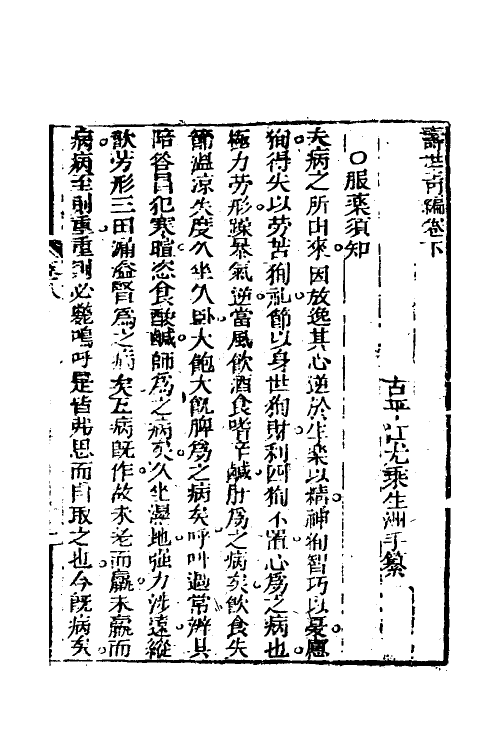 壽世奇編卷下
古平江尤乘生洲手纂
○服藥須知
夫病之所由來因放逸其心逆於生樂以精神徇智巧以憂慮
徇得失以勞苦徇礼節以身世徇財利四徇不置心為之病也
極力勞形躁暴氣逆當風飲酒食嗜辛鹹肝為之病矣飲食失
節溫涼失度久坐久臥大飽大飢脾為之病矣呼叫過常辨具
陪答冒犯寒暄恣食酸鹹肺為之病矣久坐濕地強力涉遠縱
歌勞形三田漏溢腎為之病矣五病既作故未老而羸未羸而
病病至則重重則必斃嗚呼是皆弗思而自取之也今既病矣